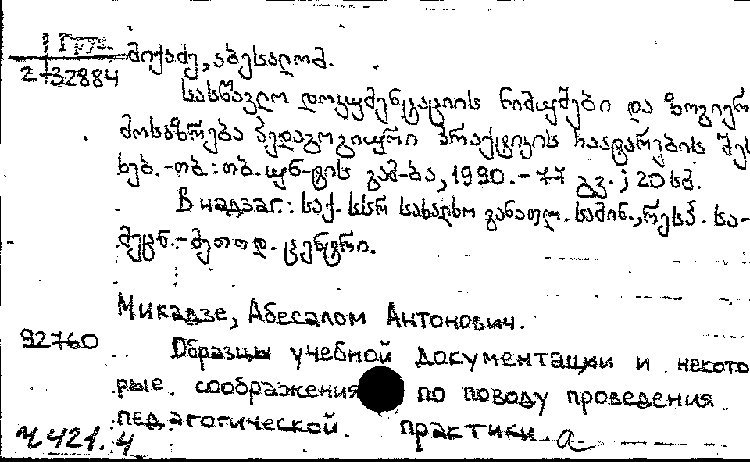 Груз. მიქაძე, აბესალომ.
2-32884
სასწავლო დოკუმენტაციის ნიმუშები და ზოგიერ
მოსაზრება პედაგოგიური პრაქტიკის ჩატარების შეს
ხებ.-თბ.: თბ. უნ-ტის გამ-ბა, 1990.-77 გვ.; 20 სმ.
В надзаг.: საქ. სსრ სახალხო განათლ. სამინ., რესპ. სა-
მეცნ.-მეთოდ. ცენტრი.
Микадзе, Абесалом Антонович.
92760 Образцы учебной документации и некото
рые соображения по поводу проведения
педагогической практики.
ч 421.4